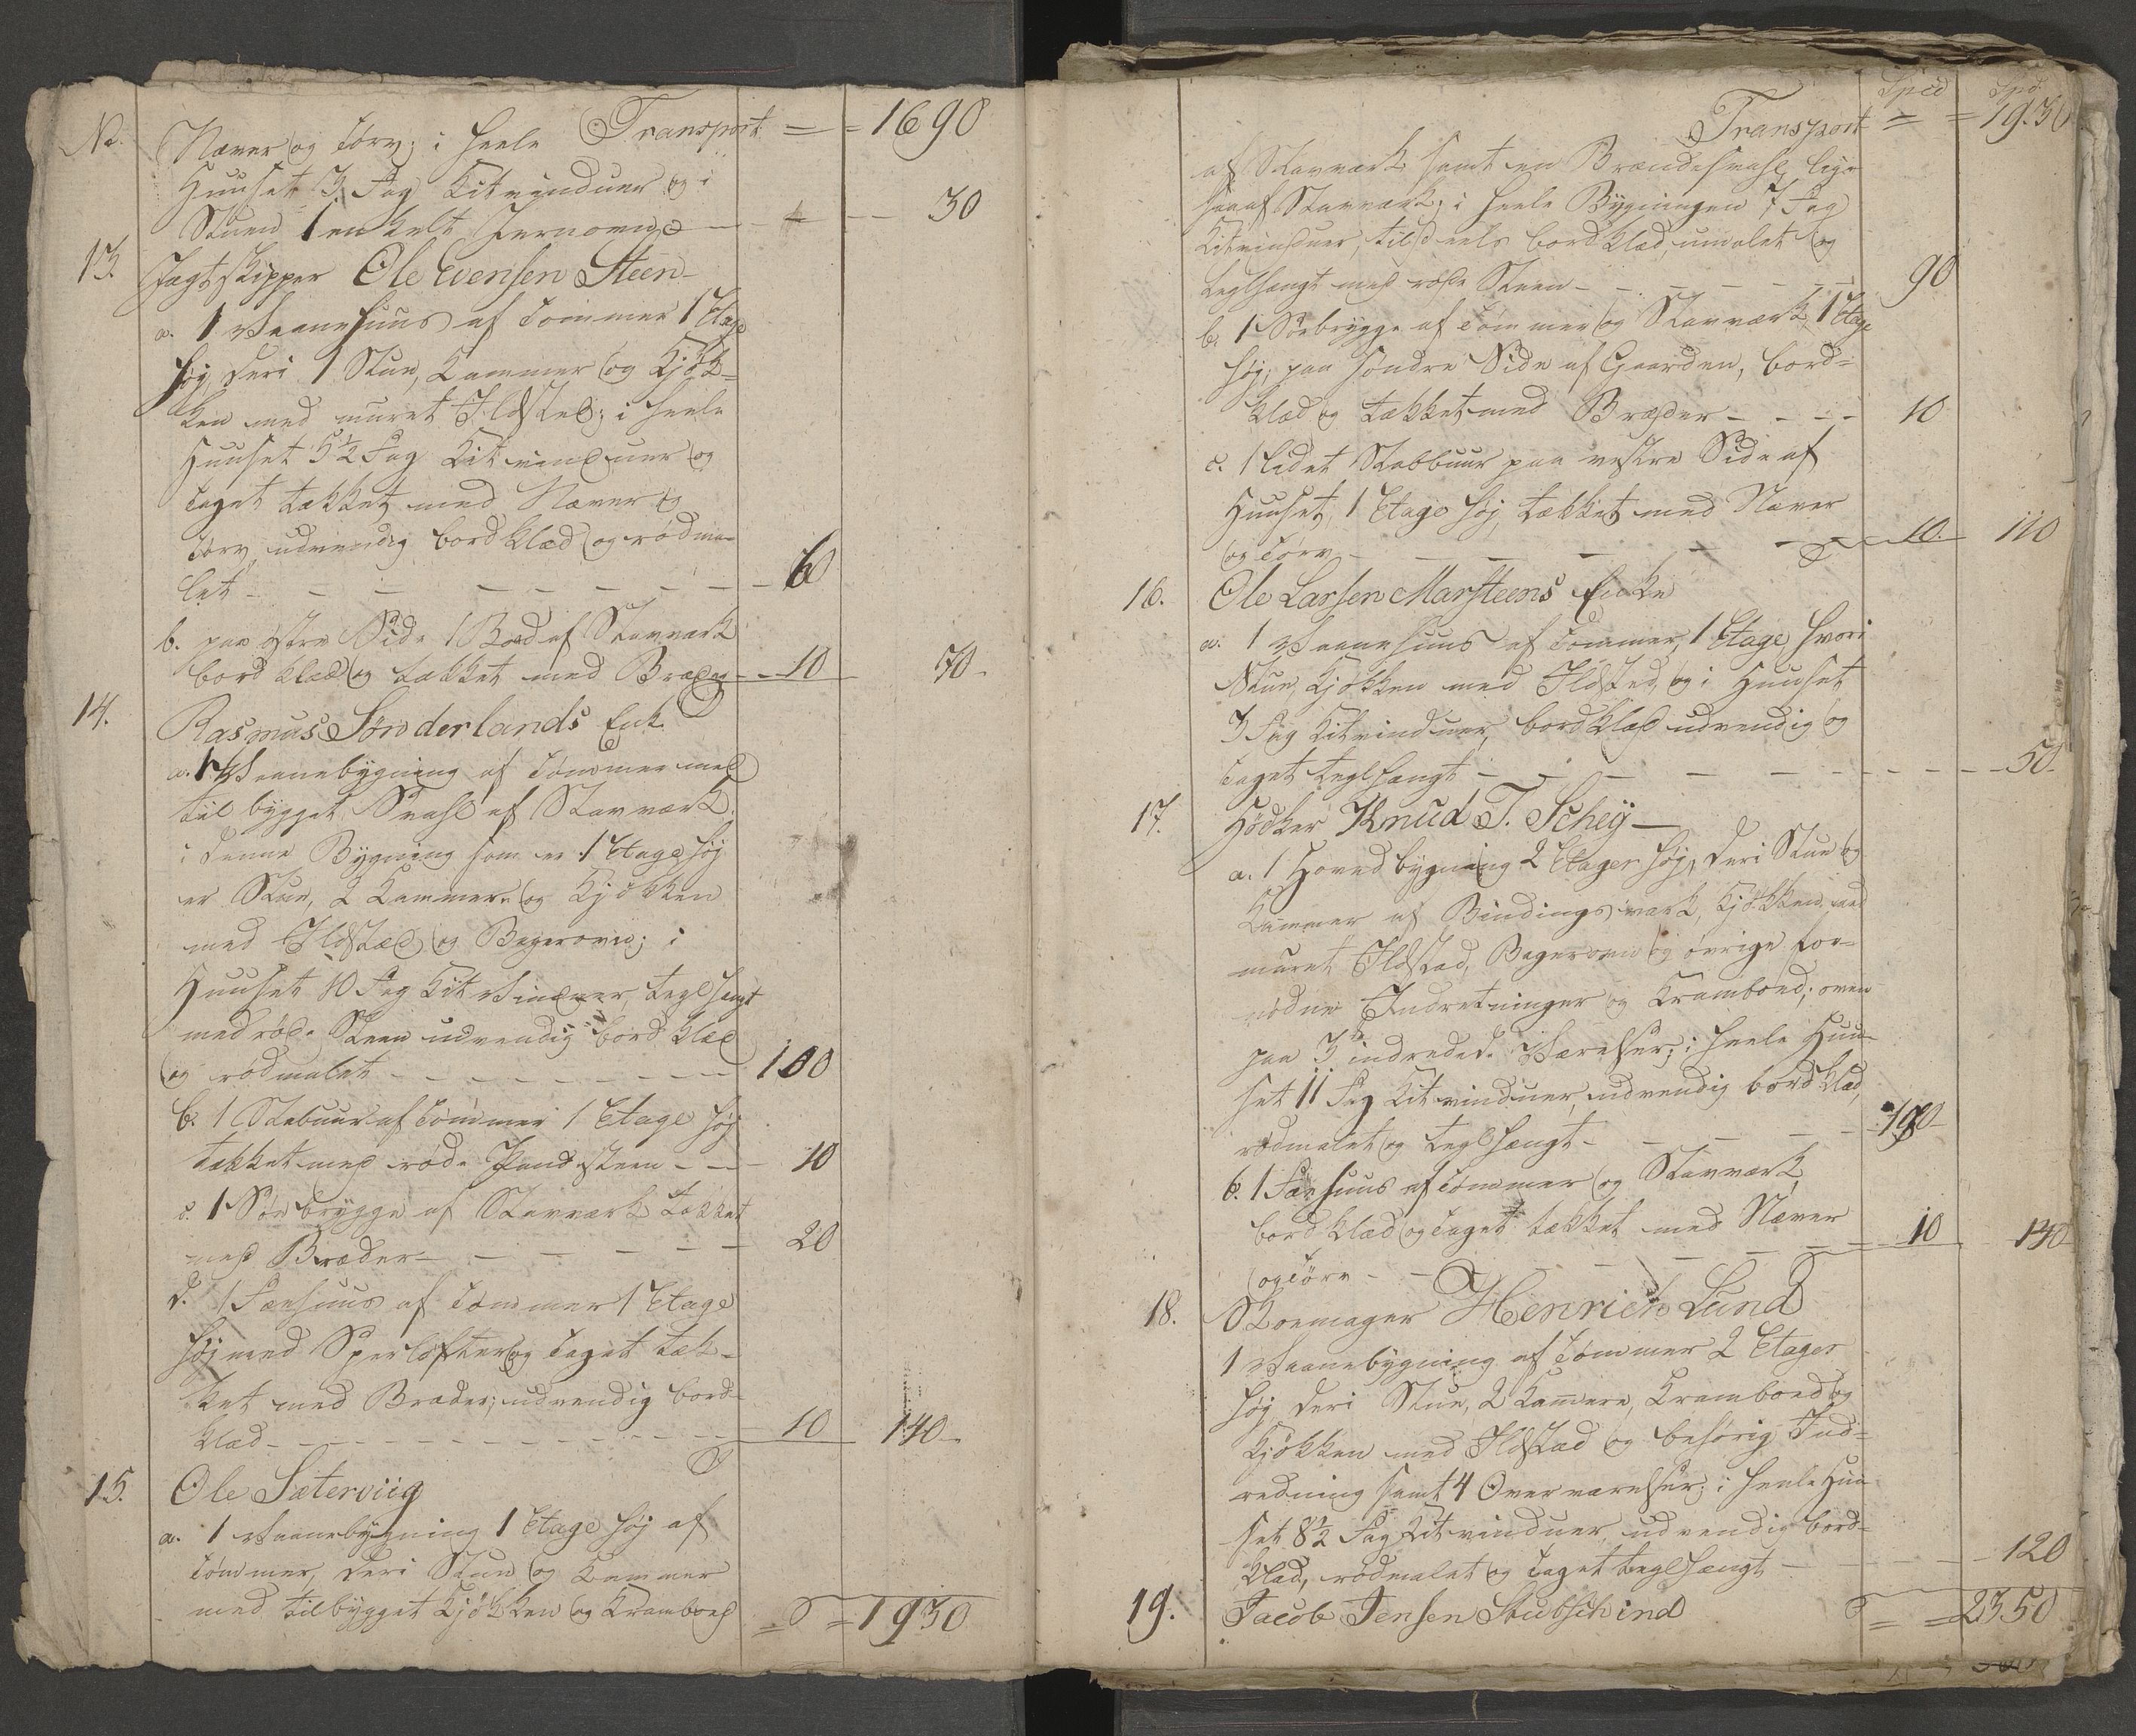 No.
Transport = = 1690
Næver og Törv; i heele
Huuset 3 Fag Kitvinduer og i
Stuen 1 enkelt Jernovn — 30
13. Jagtskipper Ole Evensen Steen
a. 1 Vaanehuus af Tömmer 1 Etage
høj, deri 1 Stue, Kammer og Kjök-
ken med muret Ildsted; i heele
Huuset 5½ Fag Kitvinduer og
Taget tækket med Næver og
Törv, udvendig bordklæd og rödma-
let - - - - - - - 60
b. paa östre Side 1 Bod af Stavværk
bordklæd og tækket med Bræder - 10 70
14. Rasmus Sönderlands Enke
a. 1 Vaanebygning af Tömmer med
tilbygget Svahl af Stavværk;
i denne Bygning som er 1 Etage høj
er Stue, 2 Kammere og Kjökken
med Ildsted og Bagerovn; i
Huuset 10 Fag Kitvinduer, teglhængt
med röde Steen udvendig bordklæd
og rödmalet - - - - - - 100
b. 1 Stabuur af Tömmer 1 Etage høj
tækket med röde Pandesteen - - - 10
c. 1 Söebrygge af Stavværk tækket
med Bræder - - - - - 20
d. 1 Fæehuus af Tömmer 1 Etage
høj med Sperlöfter og Taget tæk-
ket med Bræder; udvendig bord-
klæd - - - - - - - 10 140
15. Ole Sæterviig
a. 1 Vaanebygning 1 Etage høj af
Tömmer, deri Stue og Kammer
med tilbygget Kjökken og Kramboed
= = 1930
Spcd Spd
Transport = = 1930
af Stavværk samt en Brændesvahl lige-
saa af Stavværk; i heele Bygningen 7 Fag
Kitvinduer, tildeels bordklæd, umalet og
teglhængt med röde Steen - - - - - 90
b. 1 Söebrygge af Tömmer og Stavværk, 1 Etage
høj, paa söndre Side af Gaarden, bord-
klæd og tækket med Bræder - - - - 10
c. 1 lidet Stabbuur paa vestre Side af
Huuset, 1 Etage høj, tækket med Næver
og Törv - - - - - 10 110
16. Ole Larsen Marsteens Enke
a. 1 Vaanehuus af Tömmer, 1 Etage, hvori
Stue, Kjökken med Ildsted, og i Huuset
3 Fag Kitvinduer, bordklæd udvendig og
Taget teglhængt - - - - - - - 50
17. Hödker Knud T. Schey
a. 1 Hovedbygning 2 Etager høj, deri Stue og
Kammer af Bindingsværk, Kjökken med
muret Ildsted, Bagerovn og övrige for-
nödne Indretninger og Kramboed; oven
paa 3 indredede Værelser; i heele Huu-
set 11 Fag Kitvinduer, udvendig bordklæd,
rödmalet og teglhængt - - - -
b. 1 Fæehuus af Tömmer og Stavværk,
bordklæd og Taget tækket med Næver
og Törv - - - - - 10 140
18. Skoemager Henrich Lund
1 Vaanebygning af Tömmer 2 Etager
høj deri Stue, 2 Kam̅ere, Kramboed og
Kjökken med Ildsted og behörig Ind-
redning samt 4 Overværelser; i heele Huu-
set 8½ Fag Kitvinduer, udvendig bord-
klæd, rödmalet og Taget teglhængt - - - 120
19. Jacob Jensen Stubschind
= = 2350